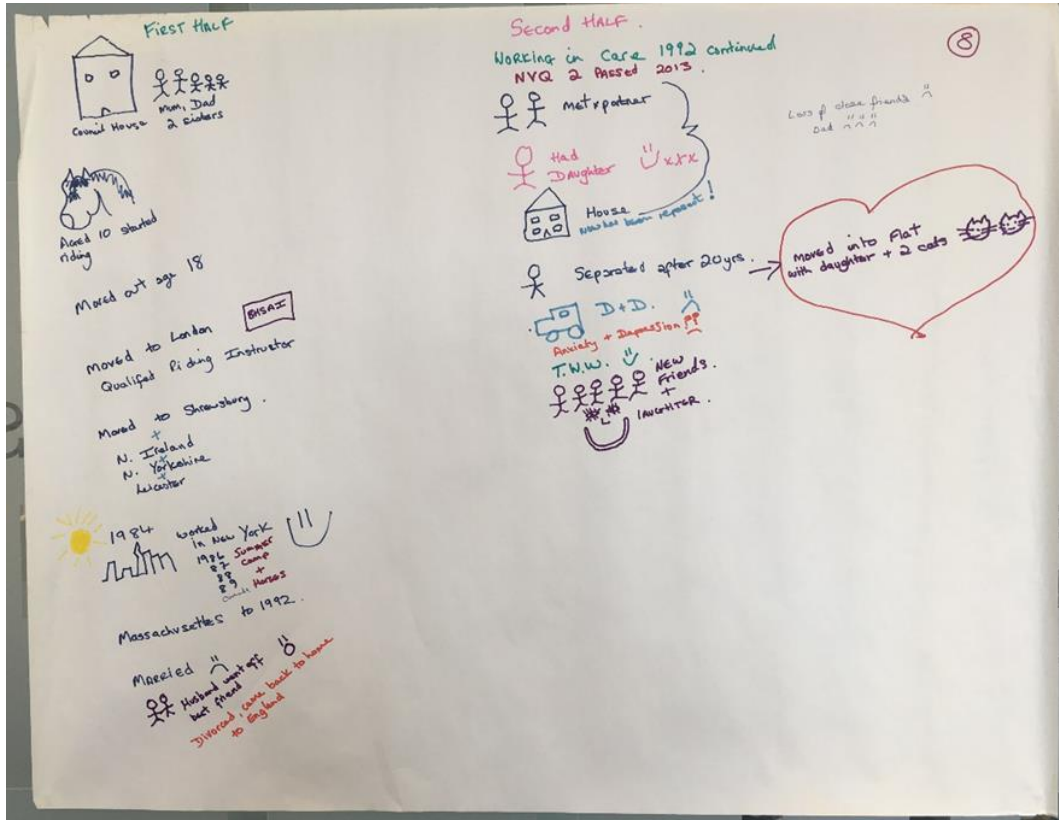 FIRST HALF
Mum, Dad
2 sisters
Council House
Aged 10 started
riding
Moved out age 18
Moved to London
BHSAI
Qualifed Riding Instructor
Moved to Shrewsbury.
+
N. Ireland
+
N. Yorkshire
+
Leicester
1984 worked
in New York
1986 Summer
87 Camp
88 +
89 Horses
Massachusettes to 1992.
MARRIED
Husband went off
best friend
Divorced, came back to home
to England
Second HALF.
Working in Care 1992 continued
NVQ 2 Passed 2013.
met x partner
Had
Daughter xxx
House
Now has been repossent!
Separated after 20yrs.
D+D.
Anxiety + Depression
T.W.W.
NEW
Friends.
+
LAUGHTER.
8
Loss of close friends
Dad
moved into Flat
with daughter + 2 cats